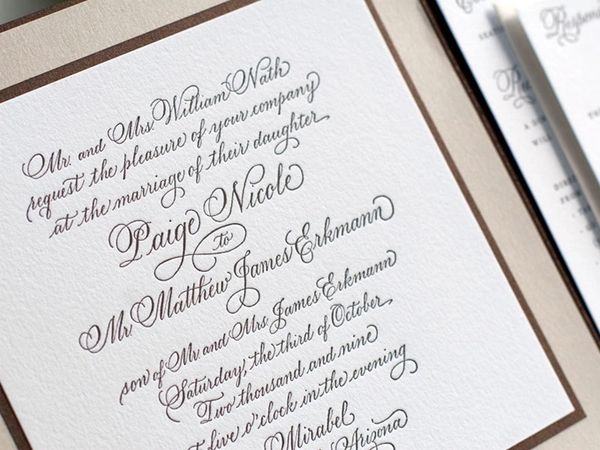 Mr. and Mrs. William Nath
request the pleasure of your company
at the marriage of their daughter
Paige Nicole
to
Mr. Matthew James Erkmann
son of Mr. and Mrs. James Erkmann
Saturday, the third of October
Two thousand and nine
at five o'clock in the evening
Mirabel
Arizona